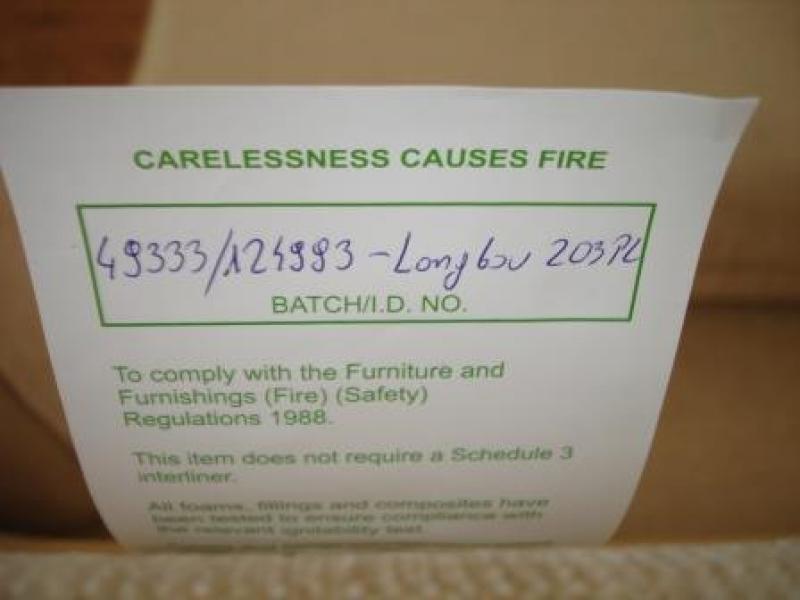 CARELESSNESS CAUSES FIRE
49333/124993 - Longbou 203PL
BATCH/I.D. NO.
To comply with the Furniture and
Furnishings (Fire) (Safety)
Regulations 1988.
This item does not require a Schedule 3
interliner.
All foams, fillings and composites have
been tested to ensure compliance with
the relevant ignitability test.